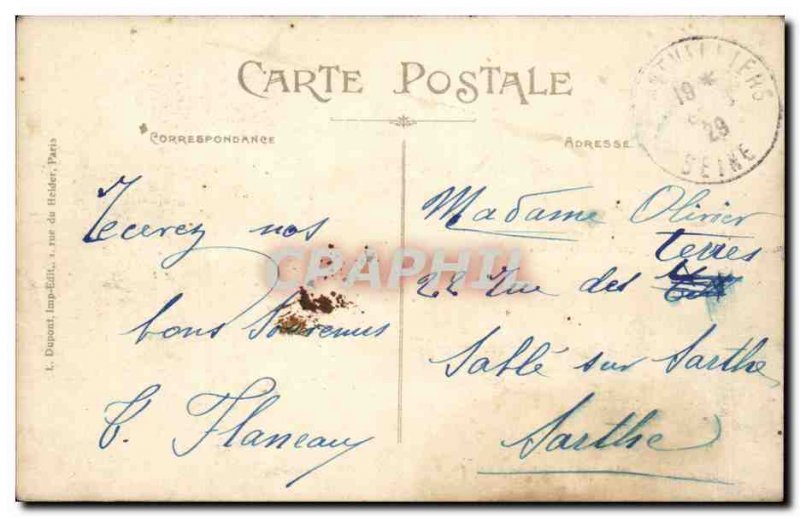 CARTE POSTALE
CORRESPONDANCE
ADRESSE
19 *
29
SEINE
L. Dupont, Imp-Edit., 1, rue du Helder, Paris
Recevez nos
bons Souvenirs
Flaneau
Madame Olivier
terres
22 Rue des
Sablé sur Sarthe
Sarthe
CPAPHIL